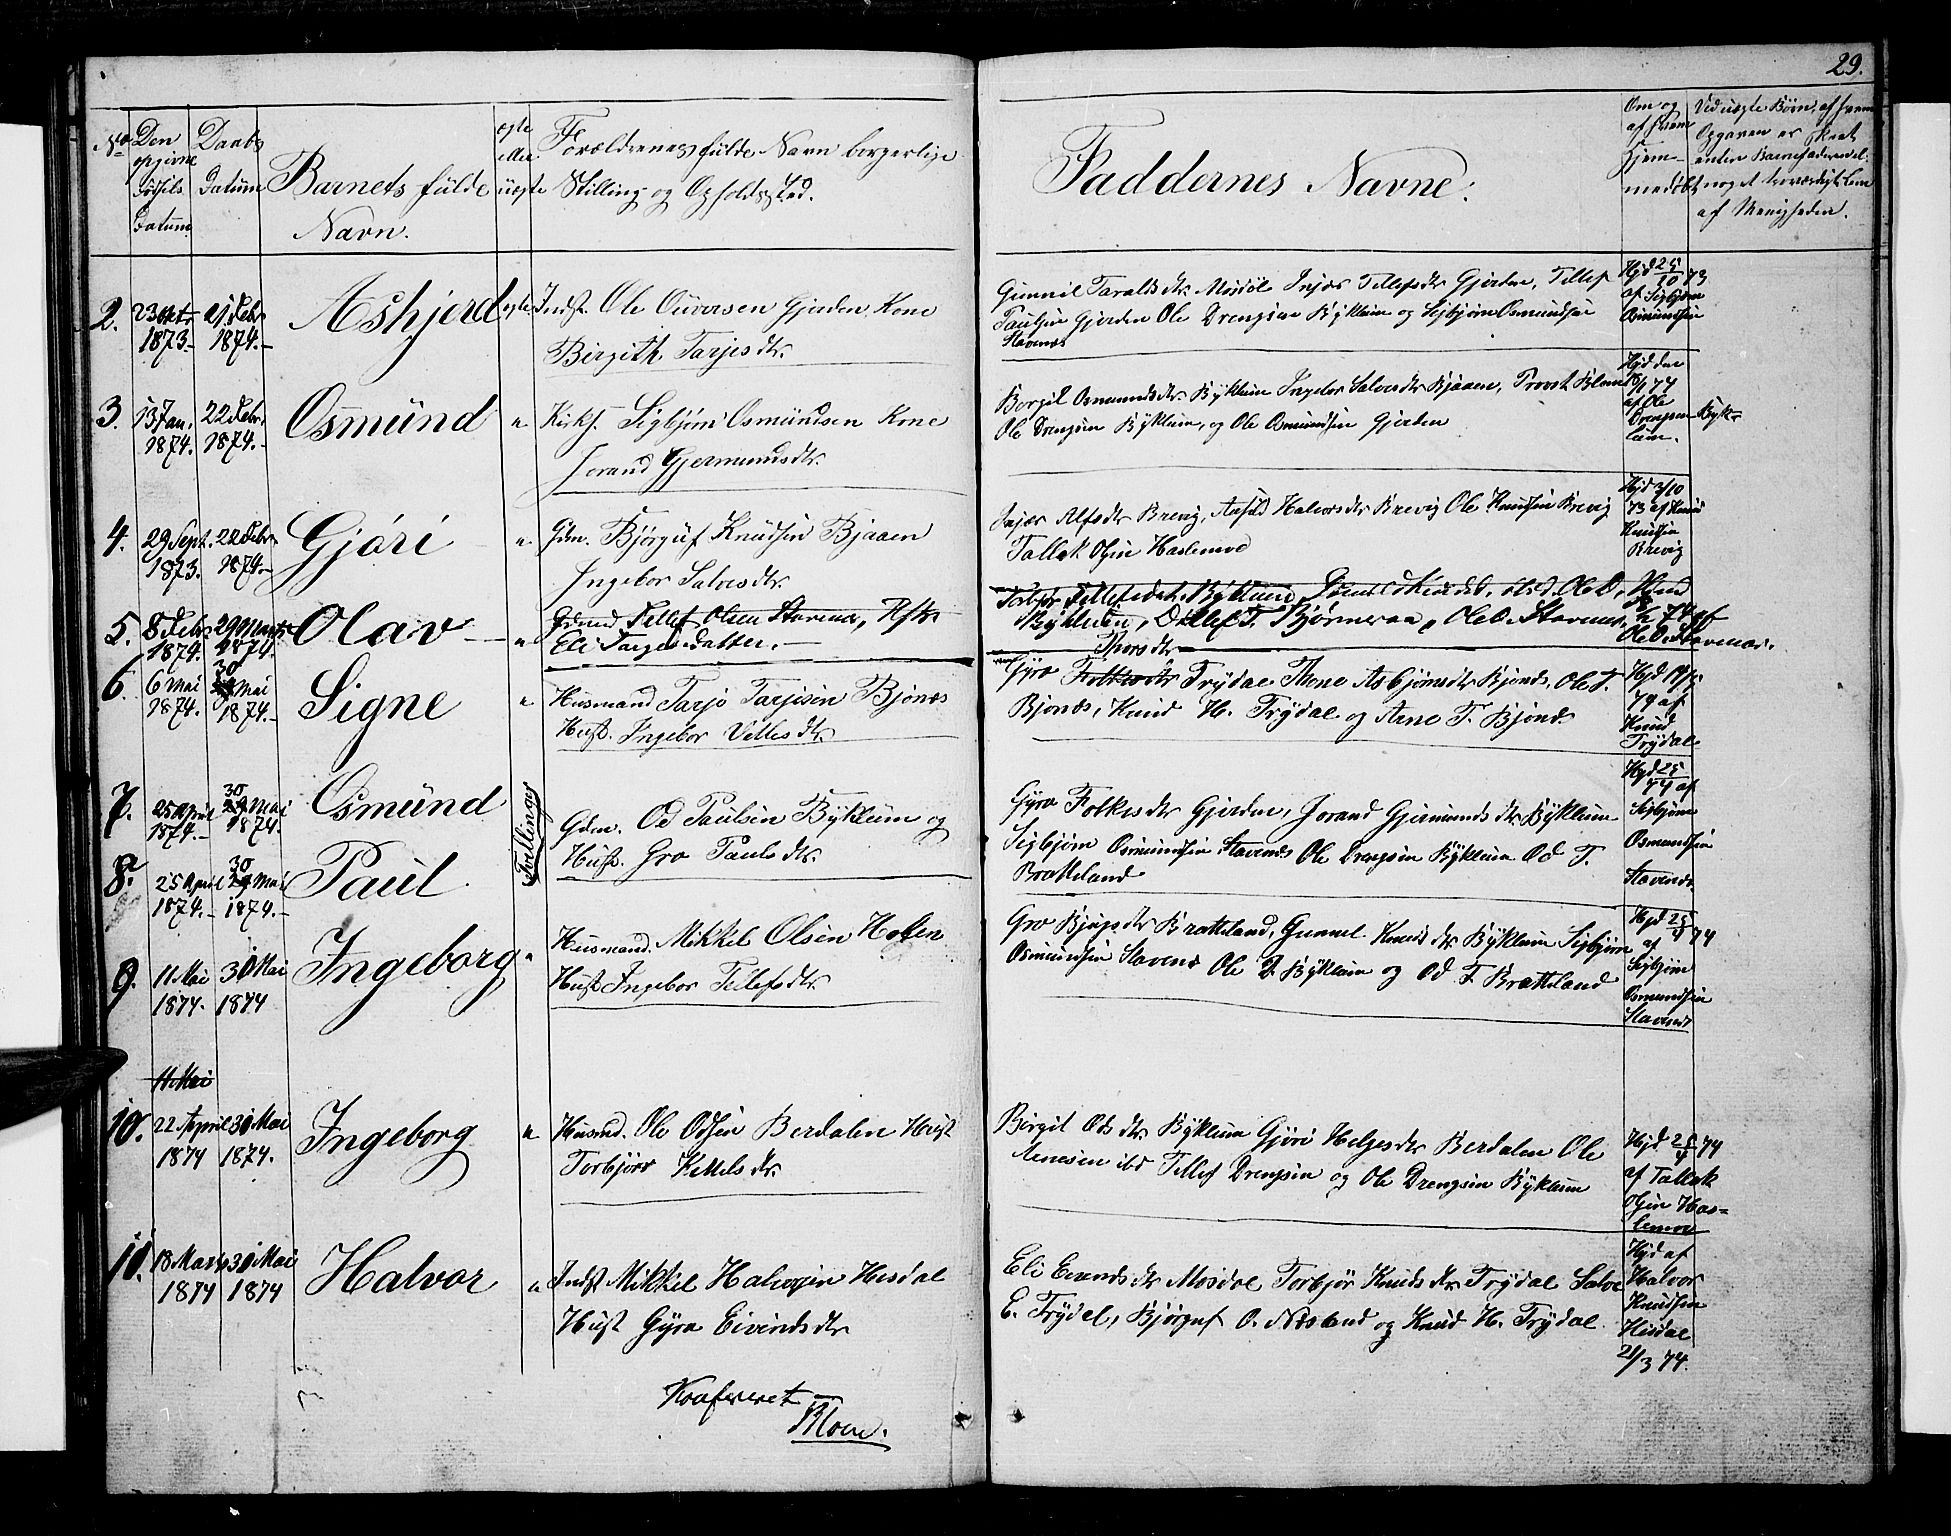 29.
No Den opgivne Fødsels Datum
Daabs Datum
Barnets fulde Navn.
ægte eller uægte
Forældrenes fulde Navn borgerlige
Stilling og Opholdssted.
Faddernes Navne.
Om og af hvem hjemmedøbt
Ved uægte Børn, af hvem Opgaven er skeet enten Barnefaderen el. noget troværdigt Lem af Menigheden.
2. 23 Oktr 1873.- 21 Febr 1874.- Ashjerd ægte Indst. Ole Guversen Gjerden, Kone
Birgith Tarjesdtr.
Gunnil Taraldsdtr. Mosdøl Injær Tellefsdtr Gjerden, Tellef
Paulsen Gjerden Ole Drengsen Byklum og Sigbjørn Osmundsen
Stavenæs
Hjd 25/10 73 af Sigbjørn Osmundsen
3. 13 Jan. 1874. 22 Febr. 1874.- Osmund " Kirks. Sigbjørn Osmundsen Kone
Jorand Gjermundsdtr.
Bergit Osmundsdtr Byklum Ingebor Salvesdtr Bjaaen, Provst Blom
Ole Drengsen Byklum, og Ole Osmundsen Gjerden
Hjd den /1 74 af Ole Drengsen Byklum.
4. 29 Sept. 1873. 22 Febr. 1874.- Gjøri " Gdm. Bjørguf Knudsen Bjaaen
Ingebor Salvesdtr.
Injær Alfsdtr Brevig, Halvorsdtr Brevig Ole Knudsen Brevig
Tallak Olsen Haslemoe
Hjd 3/10 73 af Knud Knudsen Brevig
5. 8 Febr 1874. 29 Marts 1874. Olav " Gdmd Tellef Olsen Stavenæs,
Eli Targesdatter.
Torbjør Tellefsdatr. Byklum, Ole O.
Byklum, D. T. Bjørneraa, Ole O. Stavenæs
74 af Ole O. Stavenæs.
6. 6 Mai 1874. 30 Mai 1874.- Signe " Husmand Tarjo Tarjesen Bjonæs
Hust. Ingebor Villesdtr.
Thorsdtr
Gyro Folkesdtr Trydal Thone Asbjørnsdtr Bjonæs, Ole T.
Bjonæs, Knud H. Trydal og Arne T. Bjonæs
Hjd 74 af Knud Trydal
7. 25 April 1874.- 30 Mai 1874. Osmund Tvillinger Gdm. Od Paulsen Byklum og
Hust. Gro Paulsdtr.
Gyro Folkesdtr Gjerden, Jorand Gjermundsdtr Byklum
Sigbjørn Osmundsen Stavenæs Ole Drengsen Byklum Od T.
Bratteland
Hjd 25/4 74 af Sigbjørn Osmundsen Stavenæs
8. 25 April 1874.- 30 Mai 1874.- Paul
9. 11 Mai 1874. 30 Mai 1874 Ingeborg " Husmand. Mikkel Olsen Hoslen
Hust Ingebor Tellefsdtr.
Gro Bjugsdtr Bratteland, Gunnel Knudsdtr Byklum Sigbjørn
Osmundsen Stavenæs Ole D. Byklum og Od T. Bratteland
Hjd 25/4 74 af Sigbjørn Osmundsen Stavenæs
11 Mai
10. 22 April 1874 30 Mai 1874. Ingeborg " Husmd. Ole Odsen Berdalen Hust
Torbjør Kittelsdtr.
Birgit Odsdtr. Byklum Gjøri Helgesdtr Berdalen Ole
Arnesen ibd Tellef Drengsen og Ole Drengsen Byklum
Hjd 25/4 74 af Tallak Olsen Haslemoe
11. 18 Marts 1874 30 Mai 1874 Halvor " Indst Mikkel Halvorsen Hisdal
Hust Gyro Eivindsdtr
Eli Evendsdtr Mosdøl Torbjør Knudsdtr Trydal Salve
E. Trydal, Bjørguf O. Næsland og Knud H. Trydal.
Hjd af Halvor Knudsen Hisdal 21/3 74.
Konfereret
Blom.